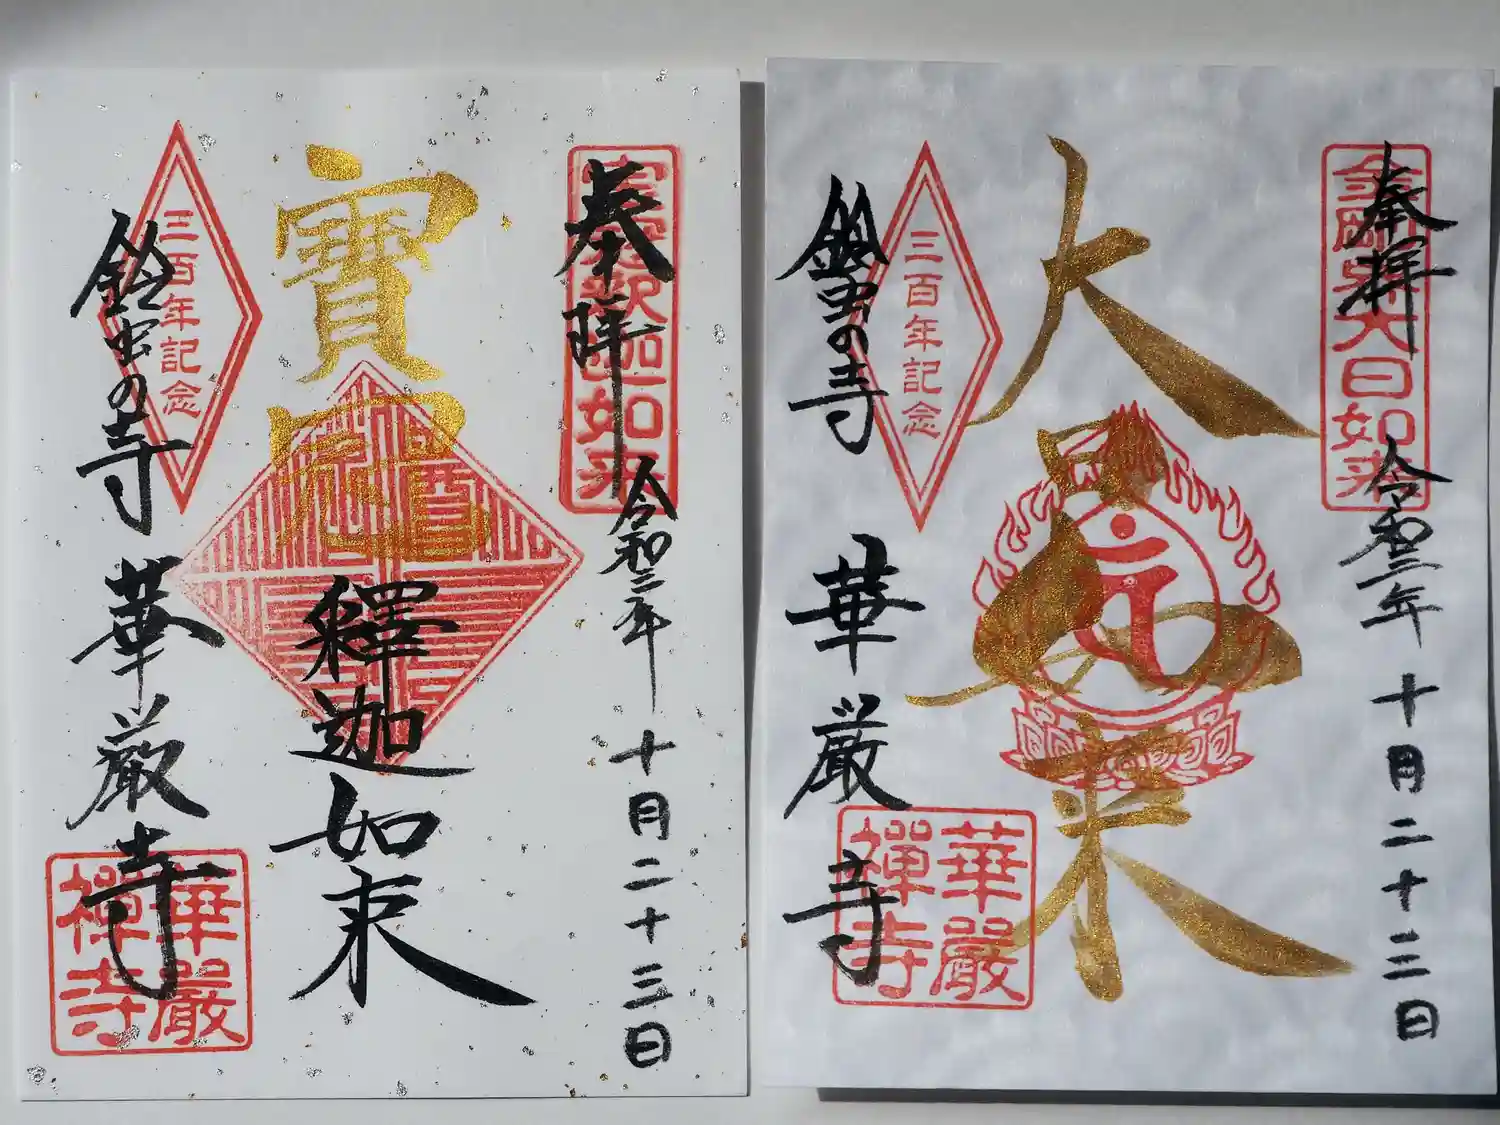 奉拝
令和三年十月二十三日
寶冠
釋迦如来
三百年記念
鈴虫の寺
華厳寺
華嚴
禪寺
金剛界大日如来
奉拝
令和三年十月二十三日
大日如来
三百年記念
鈴虫の寺
華厳寺
華嚴
禪寺